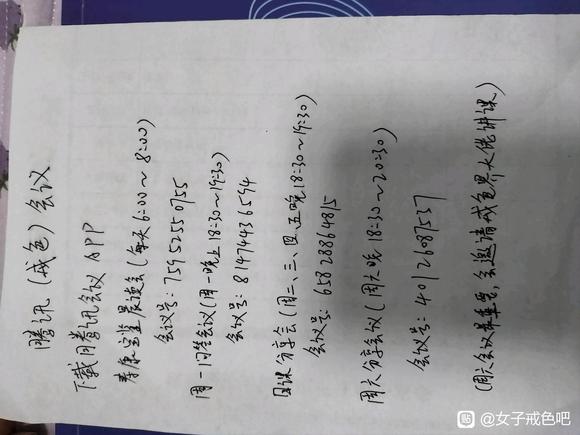 腾讯(戒色)会议
下载腾讯会议APP
寿康宝鉴晨读会(每天6:00~8:00)
会议号:75952550755
周一问答会议(周一晚上18:30~19:30)
会议号:81474436594
日课分享会(周二、三、四、五晚18:30~19:30)
会议号:65828864815
周六分享会议(周六晚18:30~20:30)
会议号:4012687537
(周六会议最重要,会邀请戒色界大佬讲课)
贴 @女子戒色吧